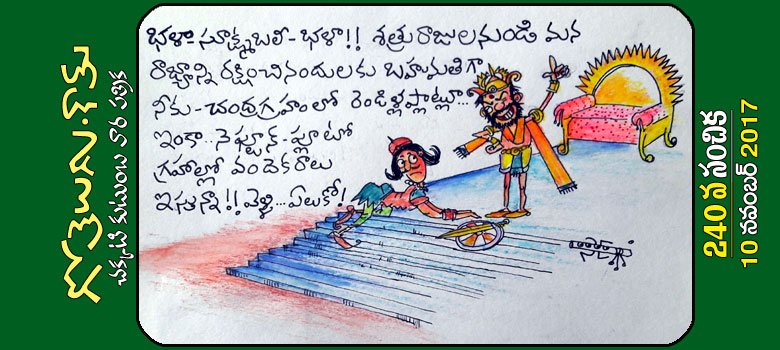 గోతెలుగు.కామ్
చక్కని కుటుంబ వార పత్రిక
భళా సూక్ష్మబలీ - భళా!! శత్రురాజులనుండి మన
రాజ్యాన్ని రక్షించినందులకు బహుమతిగా
నీకు - చంద్రగ్రహంలో రెండిళ్లప్లాట్లూ...
ఇంకా.. నెప్ట్యూన్ - ప్లూటో
గ్రహాల్లో వందెకరాలు
ఇస్తున్నా!! వెళ్లి... ఏలుకో!
240 వ సంచిక
10 నవంబర్ 2017